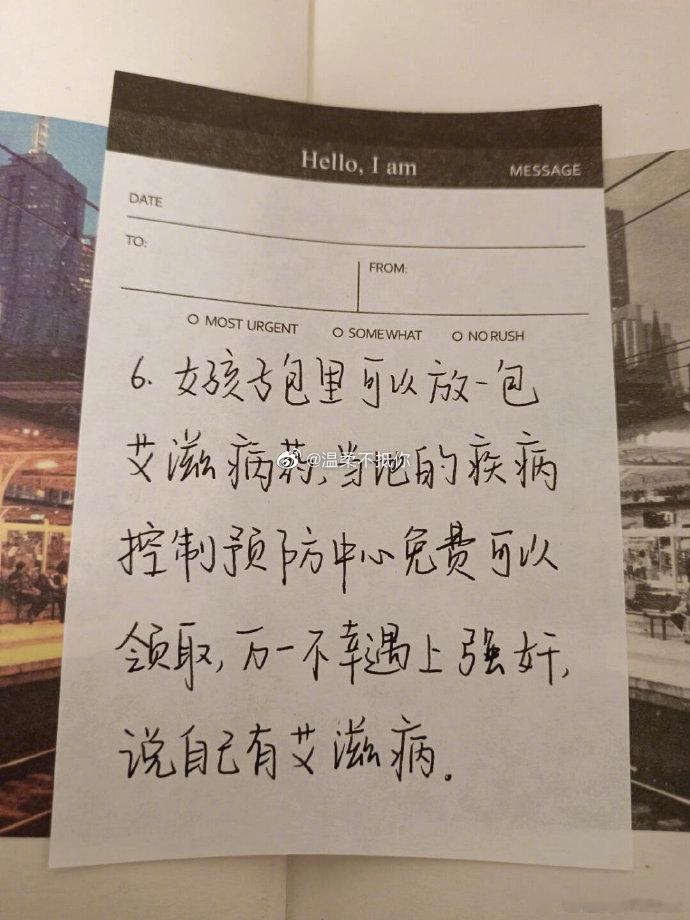 Hello, I am
MESSAGE
DATE
TO:
FROM:
MOST URGENT
SOMEWHAT
NO RUSH
6. 女孩子包里可以放一包
艾滋病药,当地的疾病
控制预防中心免费可以
领取,万一不幸遇上强奸,
说自己有艾滋病.
@温柔不抵你